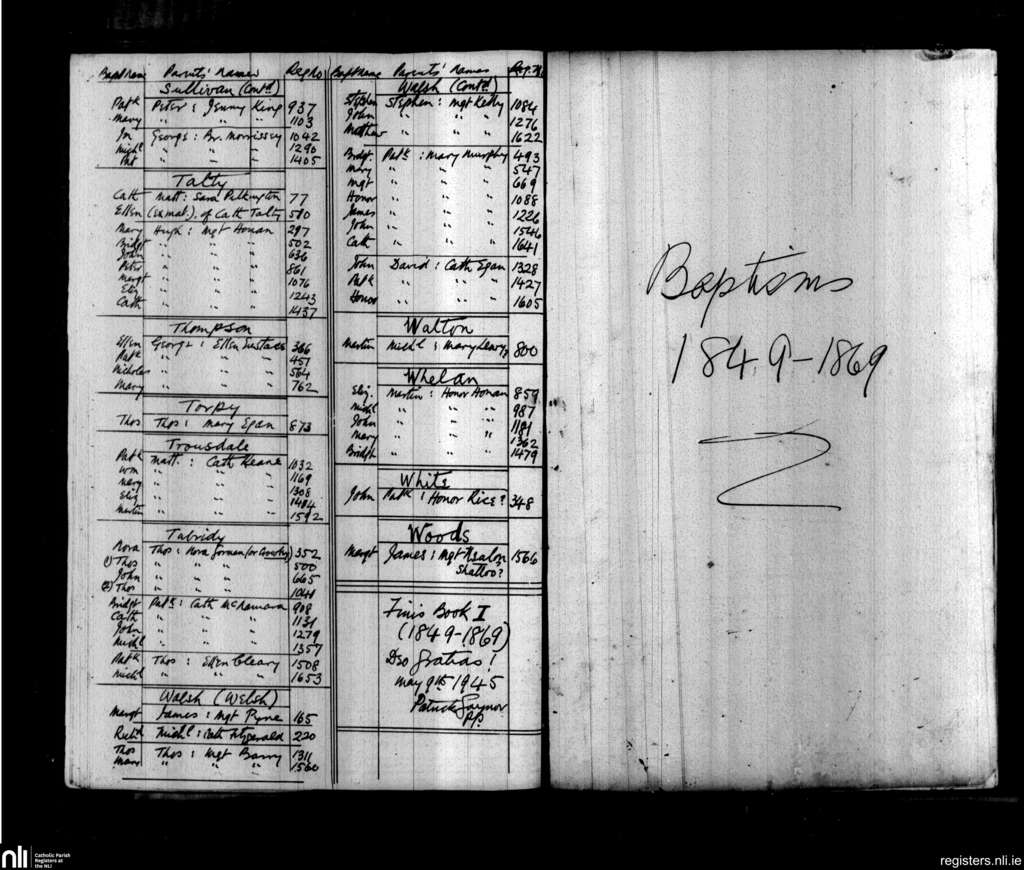 Bapt Name Parents' Names Reg No
Sullivan (Contd)
Patk Peter : Jenny King 937
Mary " " " 1103
Jn George : Br. Morrissey 1042
Michl " " " 1290
Pat " " " 1405
Talty
Cath Matt : Sara Pilkington 77
Ellen (ex mat.), of Cath Talty 510
Mary Hugh : Mgt Honan 297
Bridgt " " " 502
John " " " 636
Peter " " " 861
Margt " " " 1076
Eliz " " " 1243
Cath " " " 1437
Thompson
Ellen George : Ellen Eustace 366
Patk " " " 457
Nicholas " " " 564
Mary " " " 762
Torpy
Thos Thos : Mary Egan 873
Trousdale
Patk Matt. : Cath Keane 1032
Wm " " " 1169
Mary " " " 1308
Eliz " " " 1484
Martin " " " 1592
Tubridy
Nora Thos : Nora Gorman (or Crowley) 352
(1) Thos " " " 500
John " " " 665
(2) Thos " " " 1041
Bridgt Patk : Cath McNamara 908
Cath " " " 1131
John " " " 1279
Michl " " " 1357
Patk Thos : Ellen Cleary 1508
Michl " " " 1653
Walsh (Welsh)
Margt James : Mgt Pyne 165
Richd Michl : Cath Fitzgerald 220
Thos Thos : Mgt Barry 1311
Mary " " " 1560
Bapt Name Parents' Names Reg. No
Walsh (Contd)
Stephen Stephen : Mgt Kelly 1084
John " " " 1276
Mathew " " " 1622
Bridgt. Patk : Mary Murphy 493
Mary " " " 547
Mgt " " " 669
Honor " " " 1088
James " " " 1226
John " " " 1546
Cath " " " 1641
John David : Cath Egan 1328
Patk " " " 1427
Honor " " " 1605
Walton
Martin Michl : Mary Leary, 800
Whelan
Eliz. Martin : Honor Honan 859
Michl " " " 987
John " " " 1181
Mary " " " 1362
Bridgt " " " 1479
White
John Patk : Honor Rice? 348
Woods
Margt James : Mgt 1566
Shalloo?
Finis Book I
(1849-1869)
Deo Gratias!
May 9th 1945
Patrick Gaynor
P.P.
Baptisms
1849-1869
nli Catholic Parish
Registers at
the NLI
registers.nli.ie